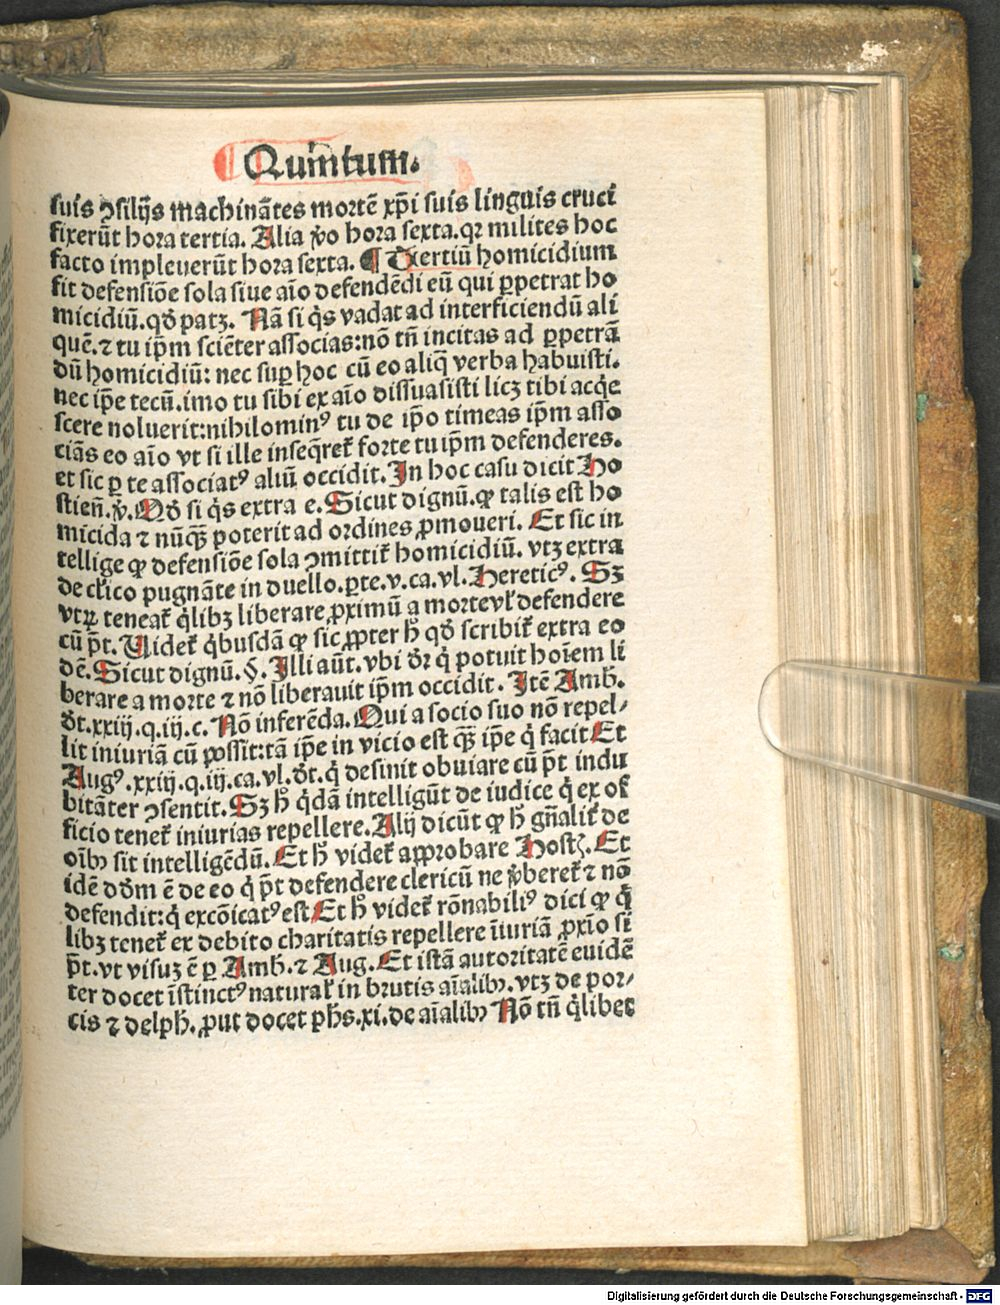 Quintum.
suis ꝯsilijs machinãtes mortẽ xp̃i suis linguis cruci
fixerũt hora tertia. Alia ṽo hora sexta.qꝛ milites hoc
facto impleuerũt hora sexta. ¶ Tertiũ homicidium
fit defensiõe sola siue aĩo defendẽdi eũ qui ꝑpetrat ho
micidiũ.qđ patꝫ. Nã si q̇s vadat ad interficiendũ ali
quẽ.⁊ tu ip̃m sciẽter associas:nõ tñ incitas ad ꝑpetrã
dũ homicidiũ: nec suꝑ hoc cũ eo aliq̃ verba habuisti.
nec ip̃e tecũ.imo tu sibi ex aĩo dissuasisti licꝫ tibi acq̇e
scere noluerit:nihilominꝰ tu de ip̃o timeas ip̃m asso
ciãs eo aĩo vt si ille inseq̃ret̃ forte tu ip̃m defenderes.
et sic ꝑ te associatꝰ aliũ occidit.In hoc casu dicit Ho
stieñ.ṽ. Qđ si q̇s extra e.Sicut dignũ.ꝙ talis est ho
micida ⁊ nũq̃ꝫ poterit ad ordines ꝓmoueri. Et sic in
tellige ꝙ defensiõe sola ꝯmittit̃ homicidiũ. vtꝫ extra
de cl̃ico pugnãte in duello.ꝑte.v.ca.vl. Hereticꝰ. Sꝫ
vtꝝ teneat̃ q̇libꝫ liberare ꝓximũ a morte vl̃ defendere
cũ p̃t. Videt̃ q̇busdã ꝙ sic ꝓpter h̃ qđ scribit̃ extra eo
dẽ.Sicut dignũ.§. Illi aũt. vbi dr̃ q̇ potuit hoĩem li
berare a morte ⁊ nõ liberauit ip̃m occidit. Itẽ Amb.
dt̃.xxiij.q.iij.c. Nõ inferẽda. Qui a socio suo nõ repel⸗
lit iniuriã cũ possit:tã ip̃e in vicio est q̃ꝫ ip̃e q̇ facit Et
Augꝰ.xxiij.q.iij.ca.vl.dt̃.q̇ desinit obuiare cũ p̃t indu
bitãter ꝯsentit.Sꝫ h̃ q̇dã intelligũt de iudice q̇ ex of
ficio tenet̃ iniurias repellere.Alij dicũt ꝙ h̃ gñalit̃ de
oĩbꝰ sit intelligẽdũ. Et h̃ videt̃ approbare Hostꝫ. Et
idẽ dđm ẽ de eo q̇ p̃t defendere clericũ ne ṽberet̃ ⁊ nõ
defendit:q̇ excõicatꝰ est Et h̃ videt̃ rõnabiliꝰ dici ꝙ q̇
libꝫ tenet̃ ex debito charitatis repellere ĩiuriã ꝓxĩo si
p̃t.vt visuꝫ ẽ ꝑ Amb.⁊ Aug.Et istã autoritatẽ euidẽ
ter docet ĩstinctꝰ natural̃ in brutis aĩalibꝰ. vtꝫ de por⸗
cis ⁊ delph̃.ꝓut docet ph̃s.xi.de aĩalibꝰ Nõ tñ q̇libet
Digitalisierung gefördert durch die Deutsche Forschungsgemeinschaft - DFG